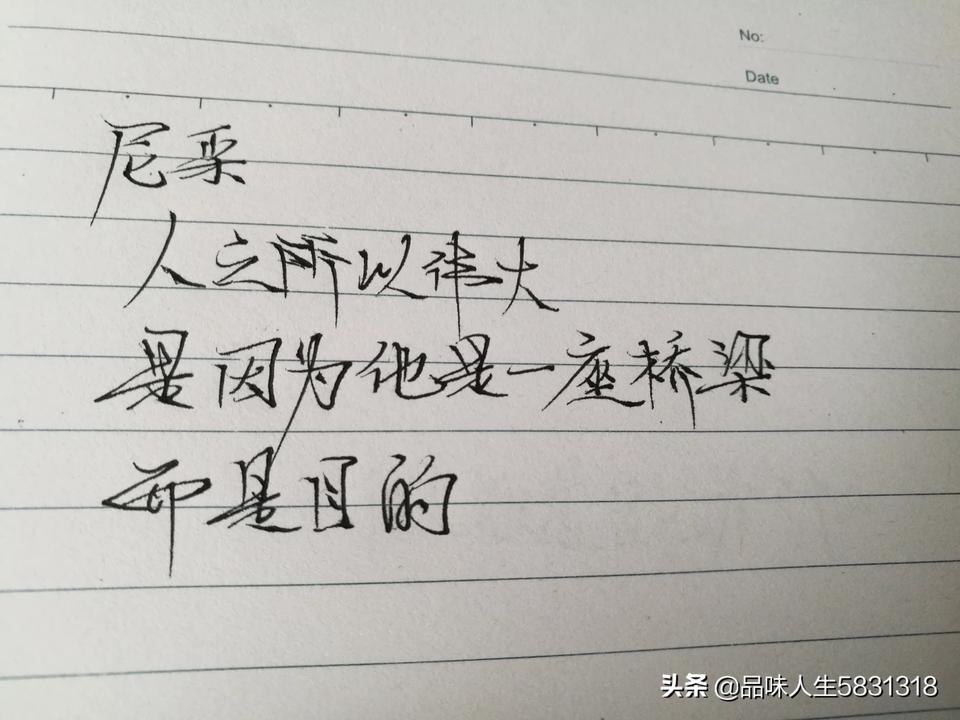 No:
Date
尼采
人之所以伟大
是因为他是一座桥梁
而是目的
头条 @品味人生5831318